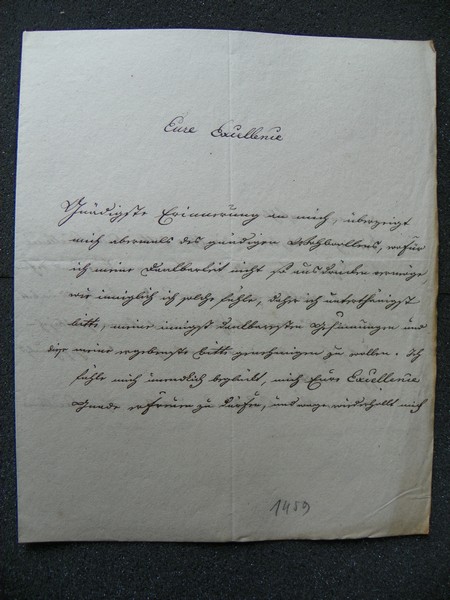 Eure Excellence
Gnädigste Erinnerung an mich, überzeugt
mich abermals des gnädigen Wohlwollens, wofür
ich meine Dankbarkeit nicht so ausdrücken vermöge,
wie inniglich ich solche fühle, daher ich unterthänigst
bitte, meiner innigst dankbarsten Gesinnungen und
diese meine ergebenste bitte genehmigen zu wollen. Ich
fühle mich unendlich beglückt, mich Eure Excellence
Gnade erfreuen zu dürfen, und wage wiederhollt mich
1459